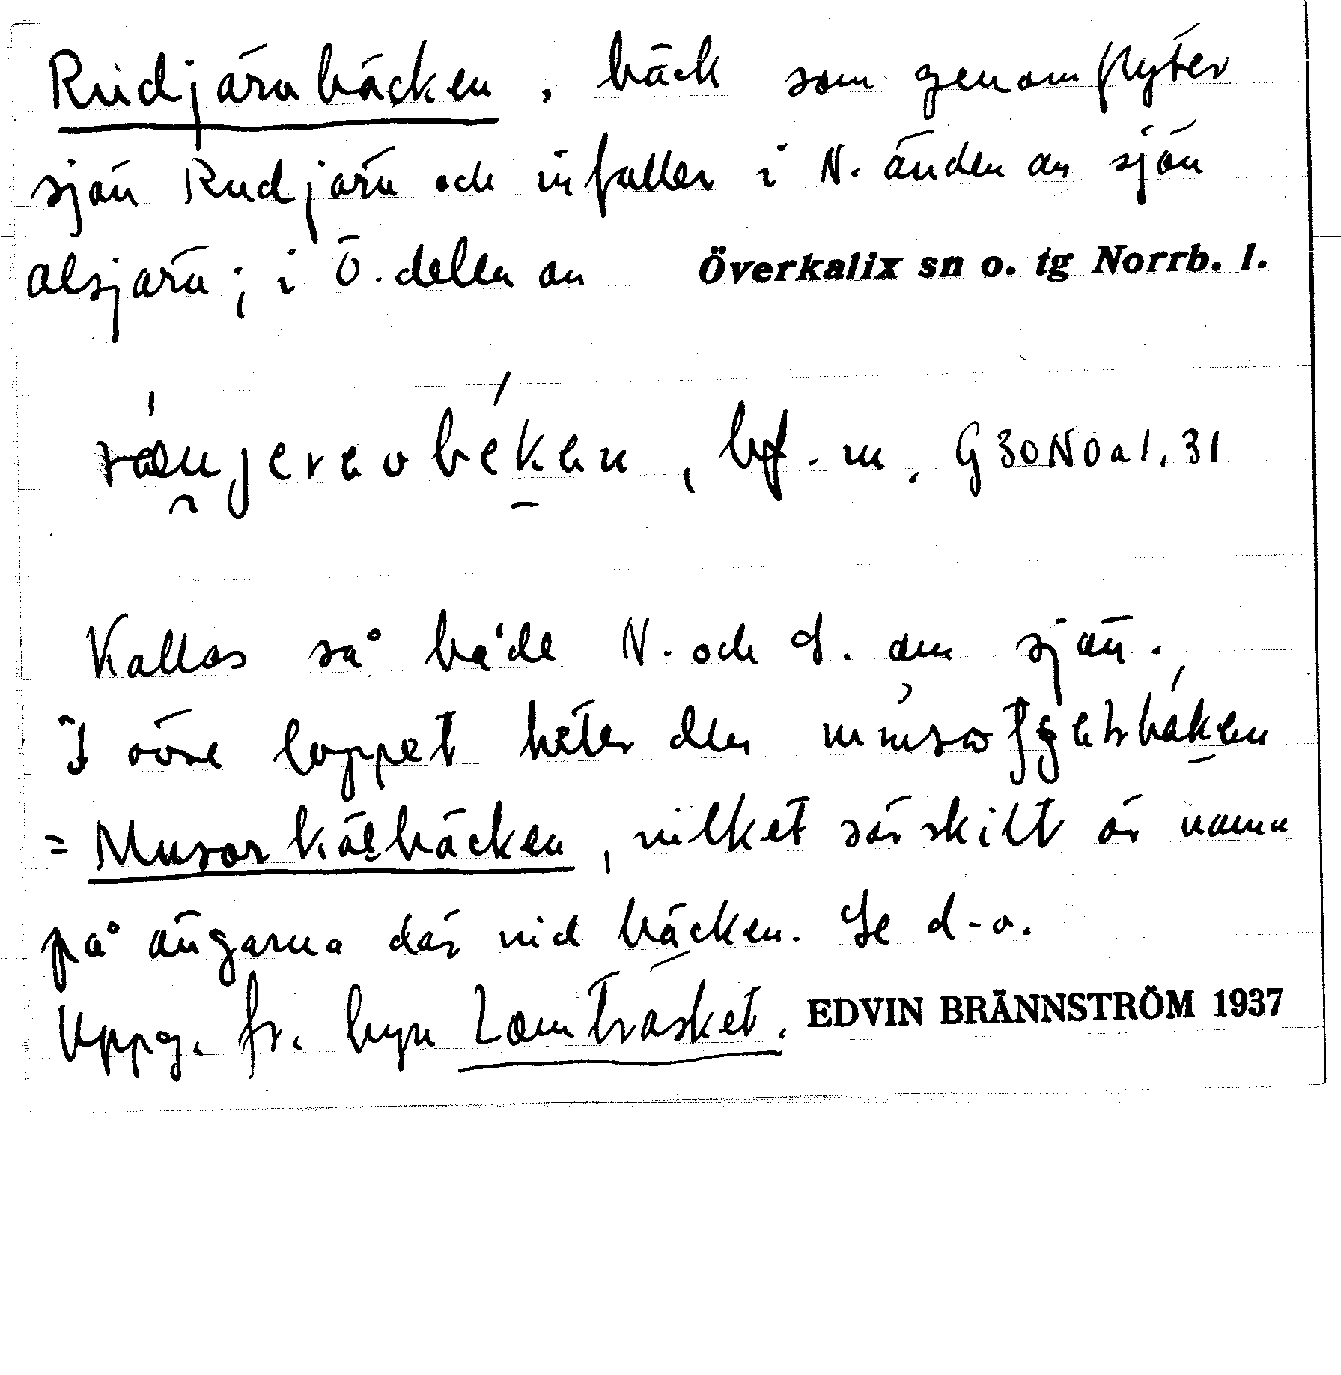 Rudjärvbäcken, bäck som genomflyter
sjön Rudjärv och infaller i N. änden av sjön
alsjärv; i Ö. delen av Överkalix sn o. tg Norrb. l.
bf. m. G30NOa1.31
Kallas så både N. och S. om sjön.
I övre loppet heter den
= Musorkälbäcken, vilket särskilt är namn
på ängarna där vid bäcken. Se d-o.
Uppg. fr. byn Lomträsket. EDVIN BRÄNNSTRÖM 1937